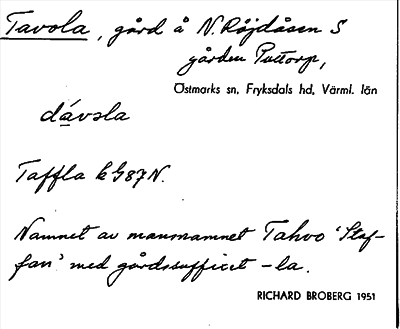 Tavola, gård å N. Röjdåsen S
gården Puttorp,
Östmarks sn, Fryksdals hd, Värml. län
dávola
Taffla k G87N.
Namnet av mansnamnet Tahvo 'Staf-
fan' med gårdssufficet -la.
RICHARD BROBERG 1951